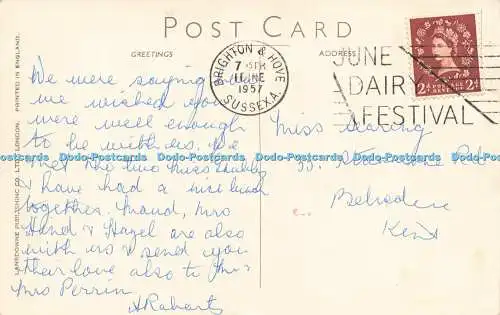 POST CARD
GREETINGS
ADDRESS
PRINTED IN ENGLAND.
LANSDOWNE PUBLISHING CO. LTD. LONDON.
BRIGHTON & HOVE
7
JNE
1957
SUSSEX.A.
JUNE
DAIRY
FESTIVAL
2D POSTAGE REVENUE 2D
We were saying
we wished you
were well enough
to be with us. We
met the two Miss
& have had a nice lunch
together. Maud, Mrs
Hand & Hazel are also
with us & send you
their love also to
Mrs Perrin.
A Roberts
Miss
Rd
Belvedere
Kent
Dodo-Postcards Dodo-Postcards Dodo-Postcards Dodo-Postcards Dodo-Postcards Dodo-Postcards